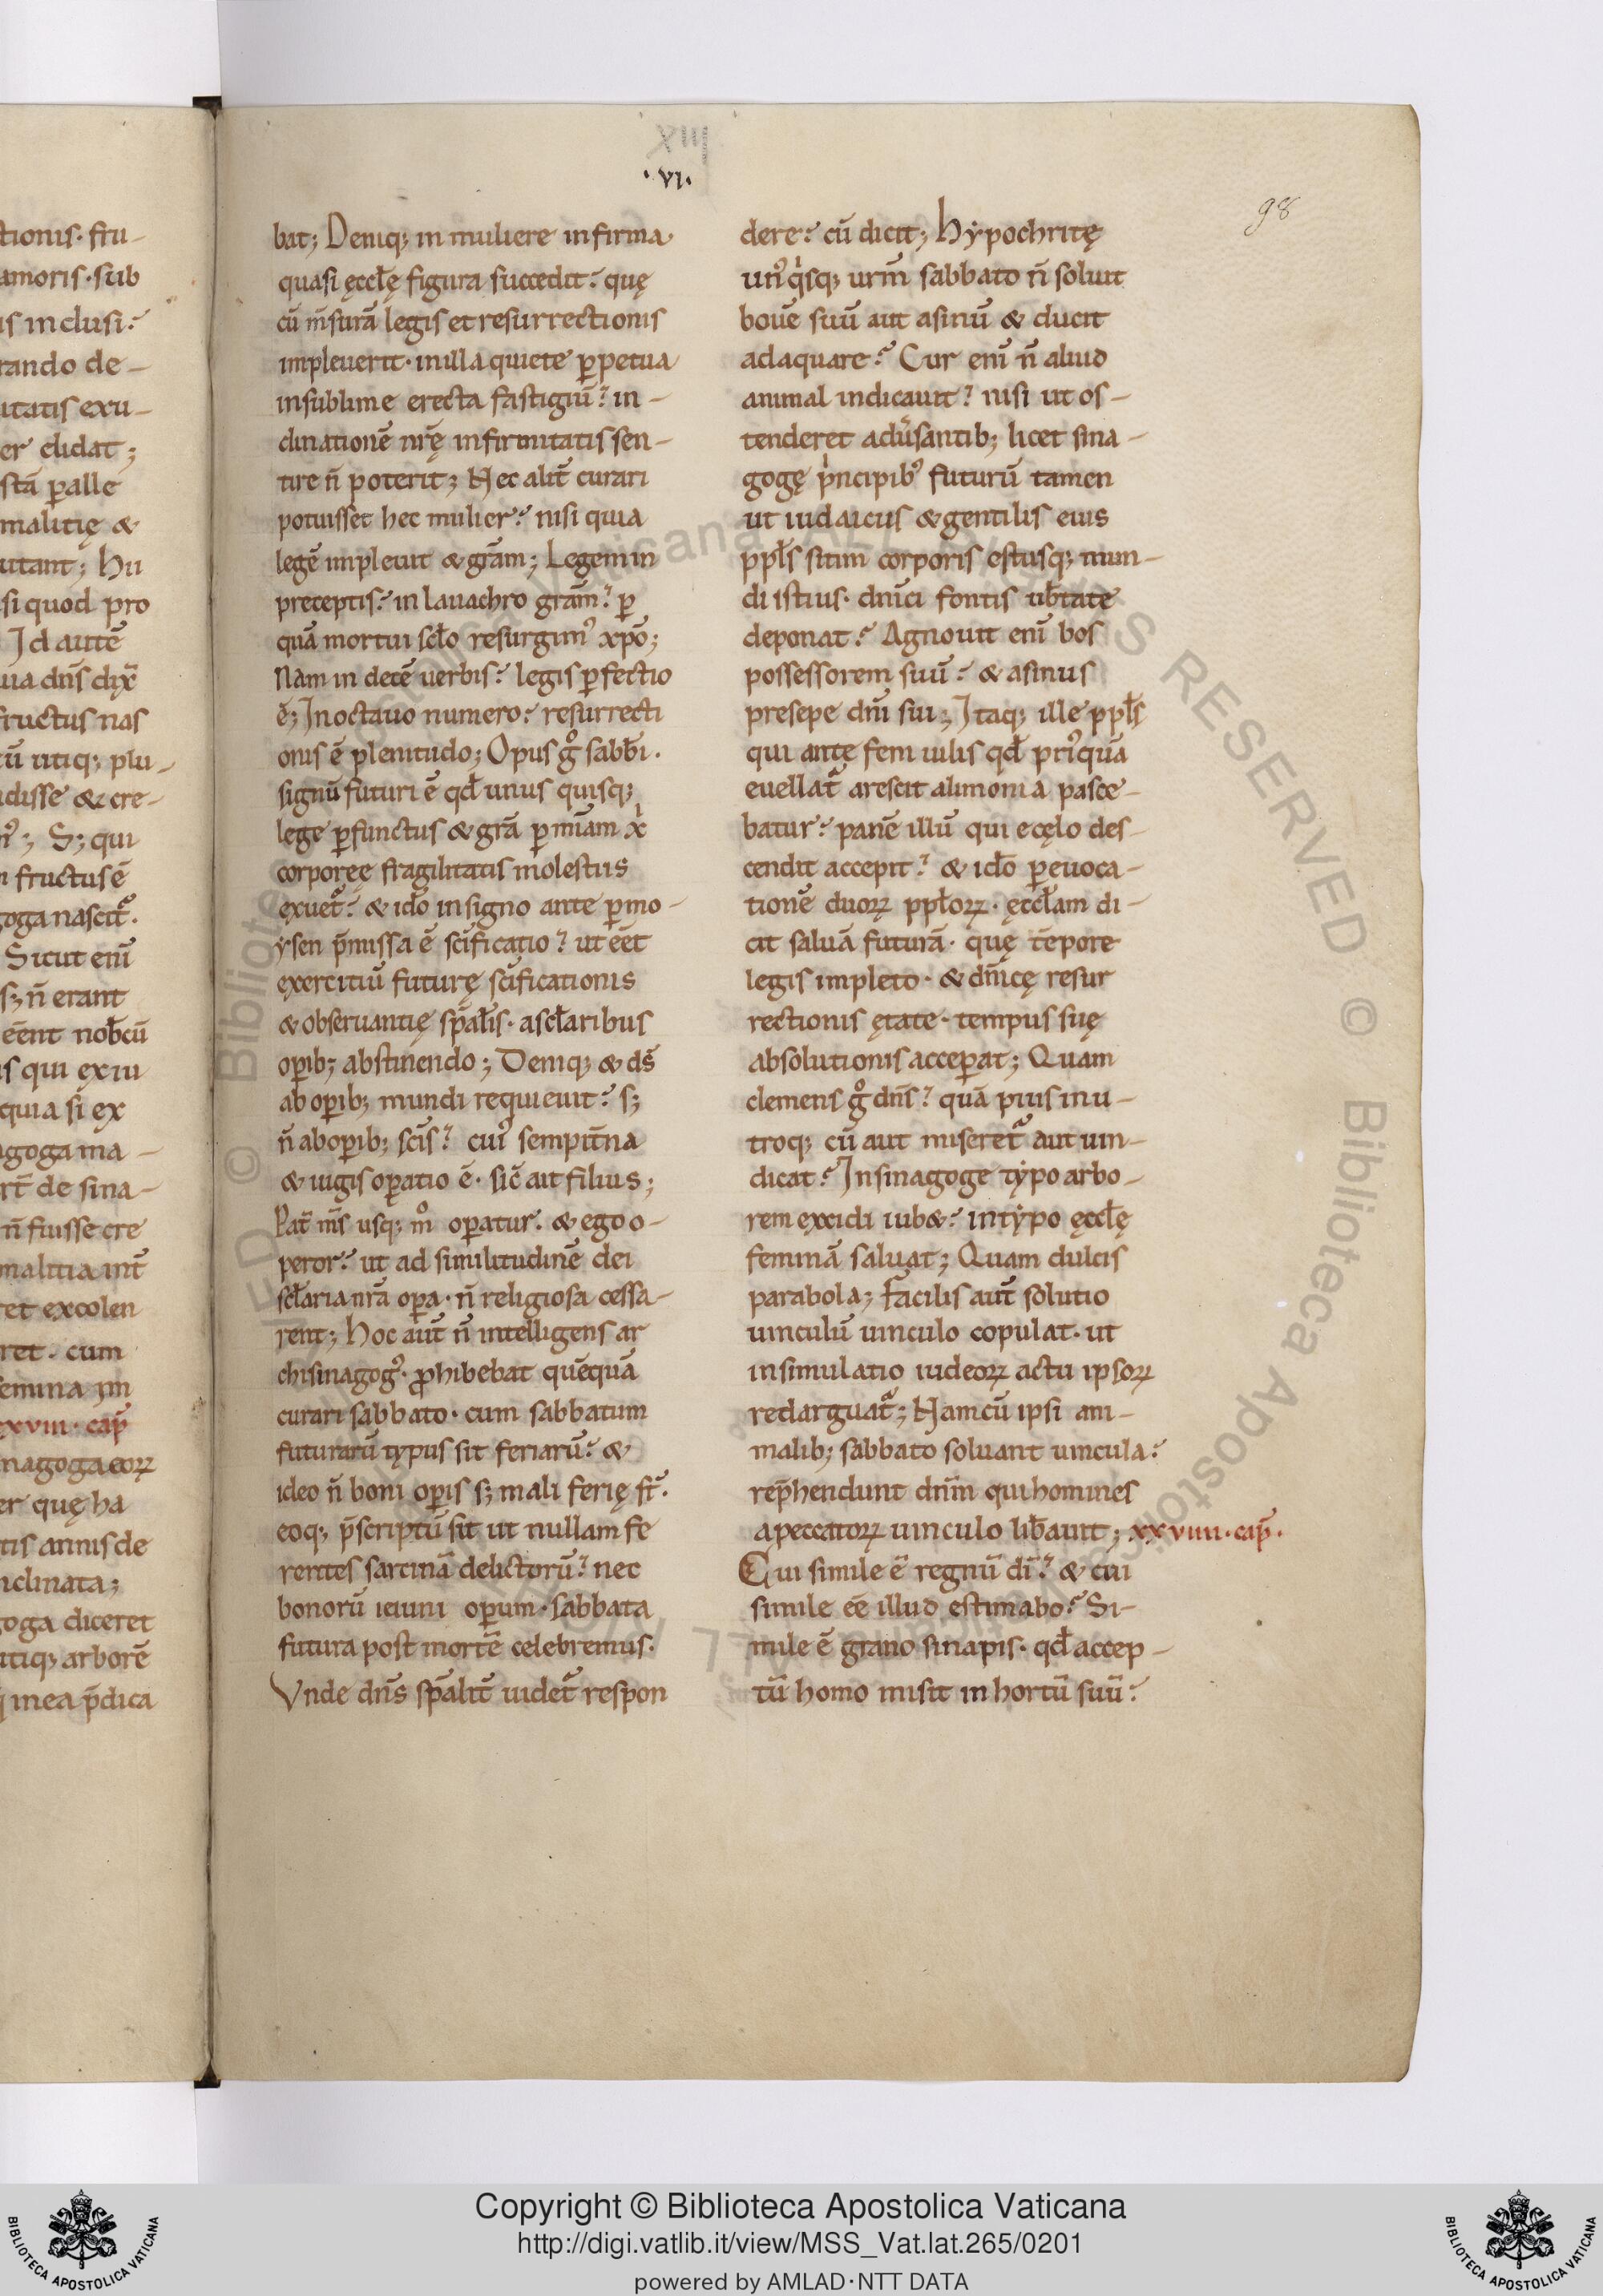 XIII
·VI·
98
tionis· fru-
amoris· sub
is inclusi·
rando de-
uitatis exu-
er cludat;
stā ꝑ alle
malitię &
utant; Hii
si quod pro
Id autē
ua dn̄s dix̄
fructus nas
ū utiq; plu-
disse & cre-
S; qui
fructus ē
goga nascit᷑.
Sicut enī
s; n̄ erant
eēnt nob̄ cū
is qui ęx iu
quia si ex
agoga ma-
rt̄ de sina-
n̄ fuisse cre
malitia int̄
ret excolen
ret· cum
emina im
xxviii· cap̄
nagoga eoꝝ
er quę ha
tis annis de
nclinata;
oga diceret
utiq; arborē
mea p̄dica
bat; Deniq; in muliere infirma·
quasi ęccl̄ę figura succedit? quę
cū m̄surā legis et resurrectionis
impleuerit· in illa quiete ꝑpetua
in sublime erecta fastigiū? in-
clinationē nr̄ę infirmitatis sen-
tire n̄ poterit; Nec alit̄ curari
potuisset hec mulier? nisi quia
legē impleuit & grām; Legem in
preceptis? in lauachro grām? ꝑ
quā mortui sc̄lo resurgimꝰ xp̄o;
Nam in decē uerbis? legis ꝑfectio
ē; In octauo numero? resurrecti
onis ē plenitudo; Opus gͦ sabb̄i.
signū futuri ē qd̄ unus quisq;
lege ꝑfunctus & grā ꝑ mīam x̄i
corporeę fragilitatis molestiis
exuet᷑? & ido̅ in signo ante ꝑ mo-
ysen p̄missa ē scīficatio? ut eēt
exercitiū futurę scīficationis
& obseruantię sp̄al̄is· a sc̄laribus
oꝑib; abstinendo; Deniq; & ds̄
ab oꝑib; mundi requieuit? s;
n̄ ab oꝑib; scīs? cuiꝰ sempit̄na
& iugis oꝑatio ē· sic̄ ait filius;
Pat̄ m̄s usq; mͦ oꝑatur· & ego o-
peror? ut ad similitudinē dei
sc̄laria nr̄a oꝑa· n̄ religiosa cessa-
rent; Hoc aut̄ n̄ intelligens ar
chisinagogꝰ· ꝓhibebat quēquā
curari sabbato· cum sabbatum
futurarū typus sit feriarū? &
ideo n̄ boni oꝑis s; mali ferię st̄.
eoq; p̄scriptū sit ut nullam fe
rentes sarcinā delictorū? nec
bonorū ieiuni oꝑum· sabbata
futura post mortē celebremus·
Vnde dn̄s sp̄alit̄ uidet᷑ respon
dere? cū dicit; Hypochritę
unꝰqͥsq; urm̄ sabbato n̄ soluit
bouē suū aut asinū & ducit
adaquare? Cur enī n̄ aliud
animal indicauit? nisi ut os-
tenderet adu̾santib; licet sina-
gogę pͥncipibꝰ futurū tamen
ut iudaicus & gentilis eius
ppl̄s sitim corporis estusq; mun-
di istius· dn̄ici fontis ub̄tate
deponat? Agnouit enī bos
possessorem suū? & asinus
presepe dn̄i sui; Itaq; ille ppl̄s
qui ante feni uilis qd̄ priꝰquā
euellat᷑ arescit alimonia pasce-
batur? panē illū qui e cęlo des-
cendit accepit? & ido̅ ꝑ euoca-
tionē duoꝝ ppl̄oꝝ· ęccl̄am di-
cit saluā futurā· quę tēpore
legis impleto· & dn̄icę resur
rectionis ętate· tempus suę
absolutionis acceꝑat; Quam
clemens gͦ dn̄s? quā pius in u-
troq; cū aut miseret᷑ aut uin-
dicat? In sinagoge typo arbo-
rem excidi iub&? in typo ęccl̄ę
feminā saluat; Quam dulcis
parabola; Facilis aut̄ solutio
uinculū uinculo copulat· ut
insimulatio iudeoꝝ actu ipsoꝝ
redarguat᷑; Nam cū ipsi ani-
malib; sabbato soluant uincula?
rep̄hendunt dn̄m qui homines
a peccatoꝝ uinculo lib̄auit; xxviiii· cap̄·
Cui simile ē regnū dī? & cui
simile eē illud estimabo? Si-
mile ē grano sinapis· qd̄ accep-
tū homo misit in hortū suū?
Copyright © Biblioteca Apostolica Vaticana
http://digi.vatlib.it/view/MSS_Vat.lat.265/0201
powered by AMLAD·NTT DATA
BIBLIOTECA APOSTOLICA VATICANA
BIBLIOTECA APOSTOLICA VATICANA